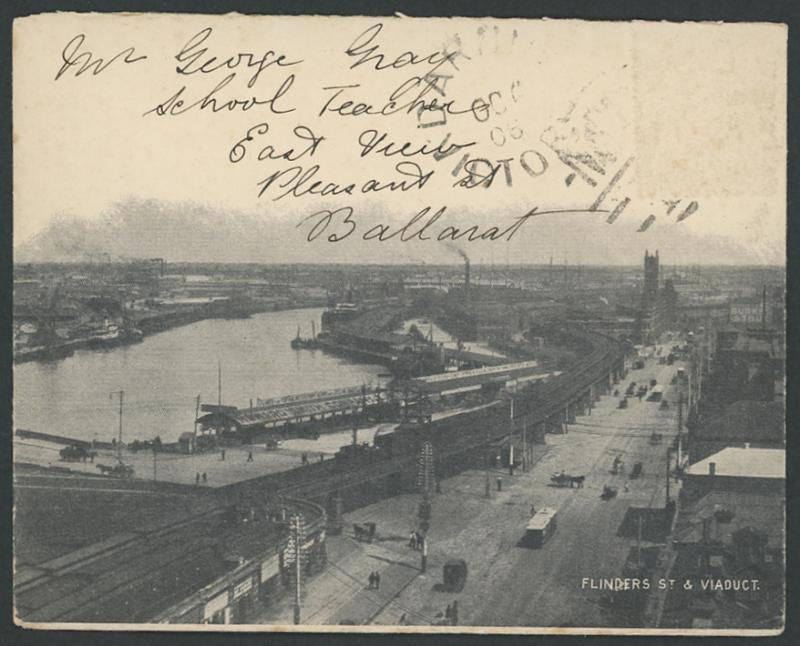 Mr George Gray
School Teacher
East View
Pleasant St
Ballarat
VICTOR
FLINDERS ST & VIADUCT.